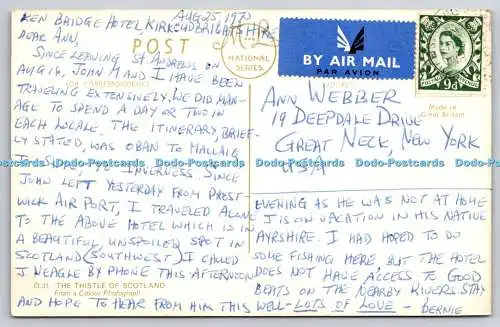 AUG 25, 1970
KEN BRIDGE HOTEL, KIRKCUDBRIGHTSHIRE
DEAR ANN,
SINCE LEAVING ST ANDREWS ON
AUG 14, JOHN M AND I HAVE BEEN
TRAVELING EXTENSIVELY. WE DID MAN-
AGE TO SPEND A DAY OR TWO IN
EACH LOCALE. THE ITINERARY, BRIEF-
LY STATED, WAS OBAN TO MALLAIG
TO SKYE, TO INVERNESS. SINCE
JOHN LEFT YESTERDAY FROM PREST-
WICK AIR PORT, I TRAVELED ALONE
TO THE ABOVE HOTEL WHICH IS IN
A BEAUTIFUL, UNSPOILED SPOT IN
SCOTLAND (SOUTHWEST) I CALLED
J NEAGLE BY PHONE THIS AFTERNOON
AND HOPE TO HEAR FROM HIM THIS
EVENING AS HE WAS NOT AT HOME
J IS ON VACATION IN HIS NATIVE
AYRSHIRE. I HAD HOPED TO DO
SOME FISHING HERE BUT THE HOTEL
DOES NOT HAVE ACCESS TO GOOD
BEATS ON THE NEARBY RIVERS. STAY
WELL - LOTS OF LOVE -
BERNIE
POST
CORRESPONDENCE
M&L
NATIONAL
SERIES
BY AIR MAIL
PAR AVION
9d
Made in
Great Britain
ANN WEBBER
19 DEEPDALE DRIVE
GREAT NECK, NEW YORK
USA
O.21. THE THISTLE OF SCOTLAND
From a Colour Photograph
Dodo-Postcards Dodo-Postcards Dodo-Postcards Dodo-Postcards Dodo-Postcards